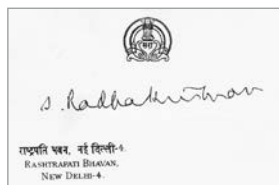 S. Radhakrishnan
राष्ट्रपति भवन, नई दिल्ली-4.
RASHTRAPATI BHAVAN,
NEW DELHI-4.